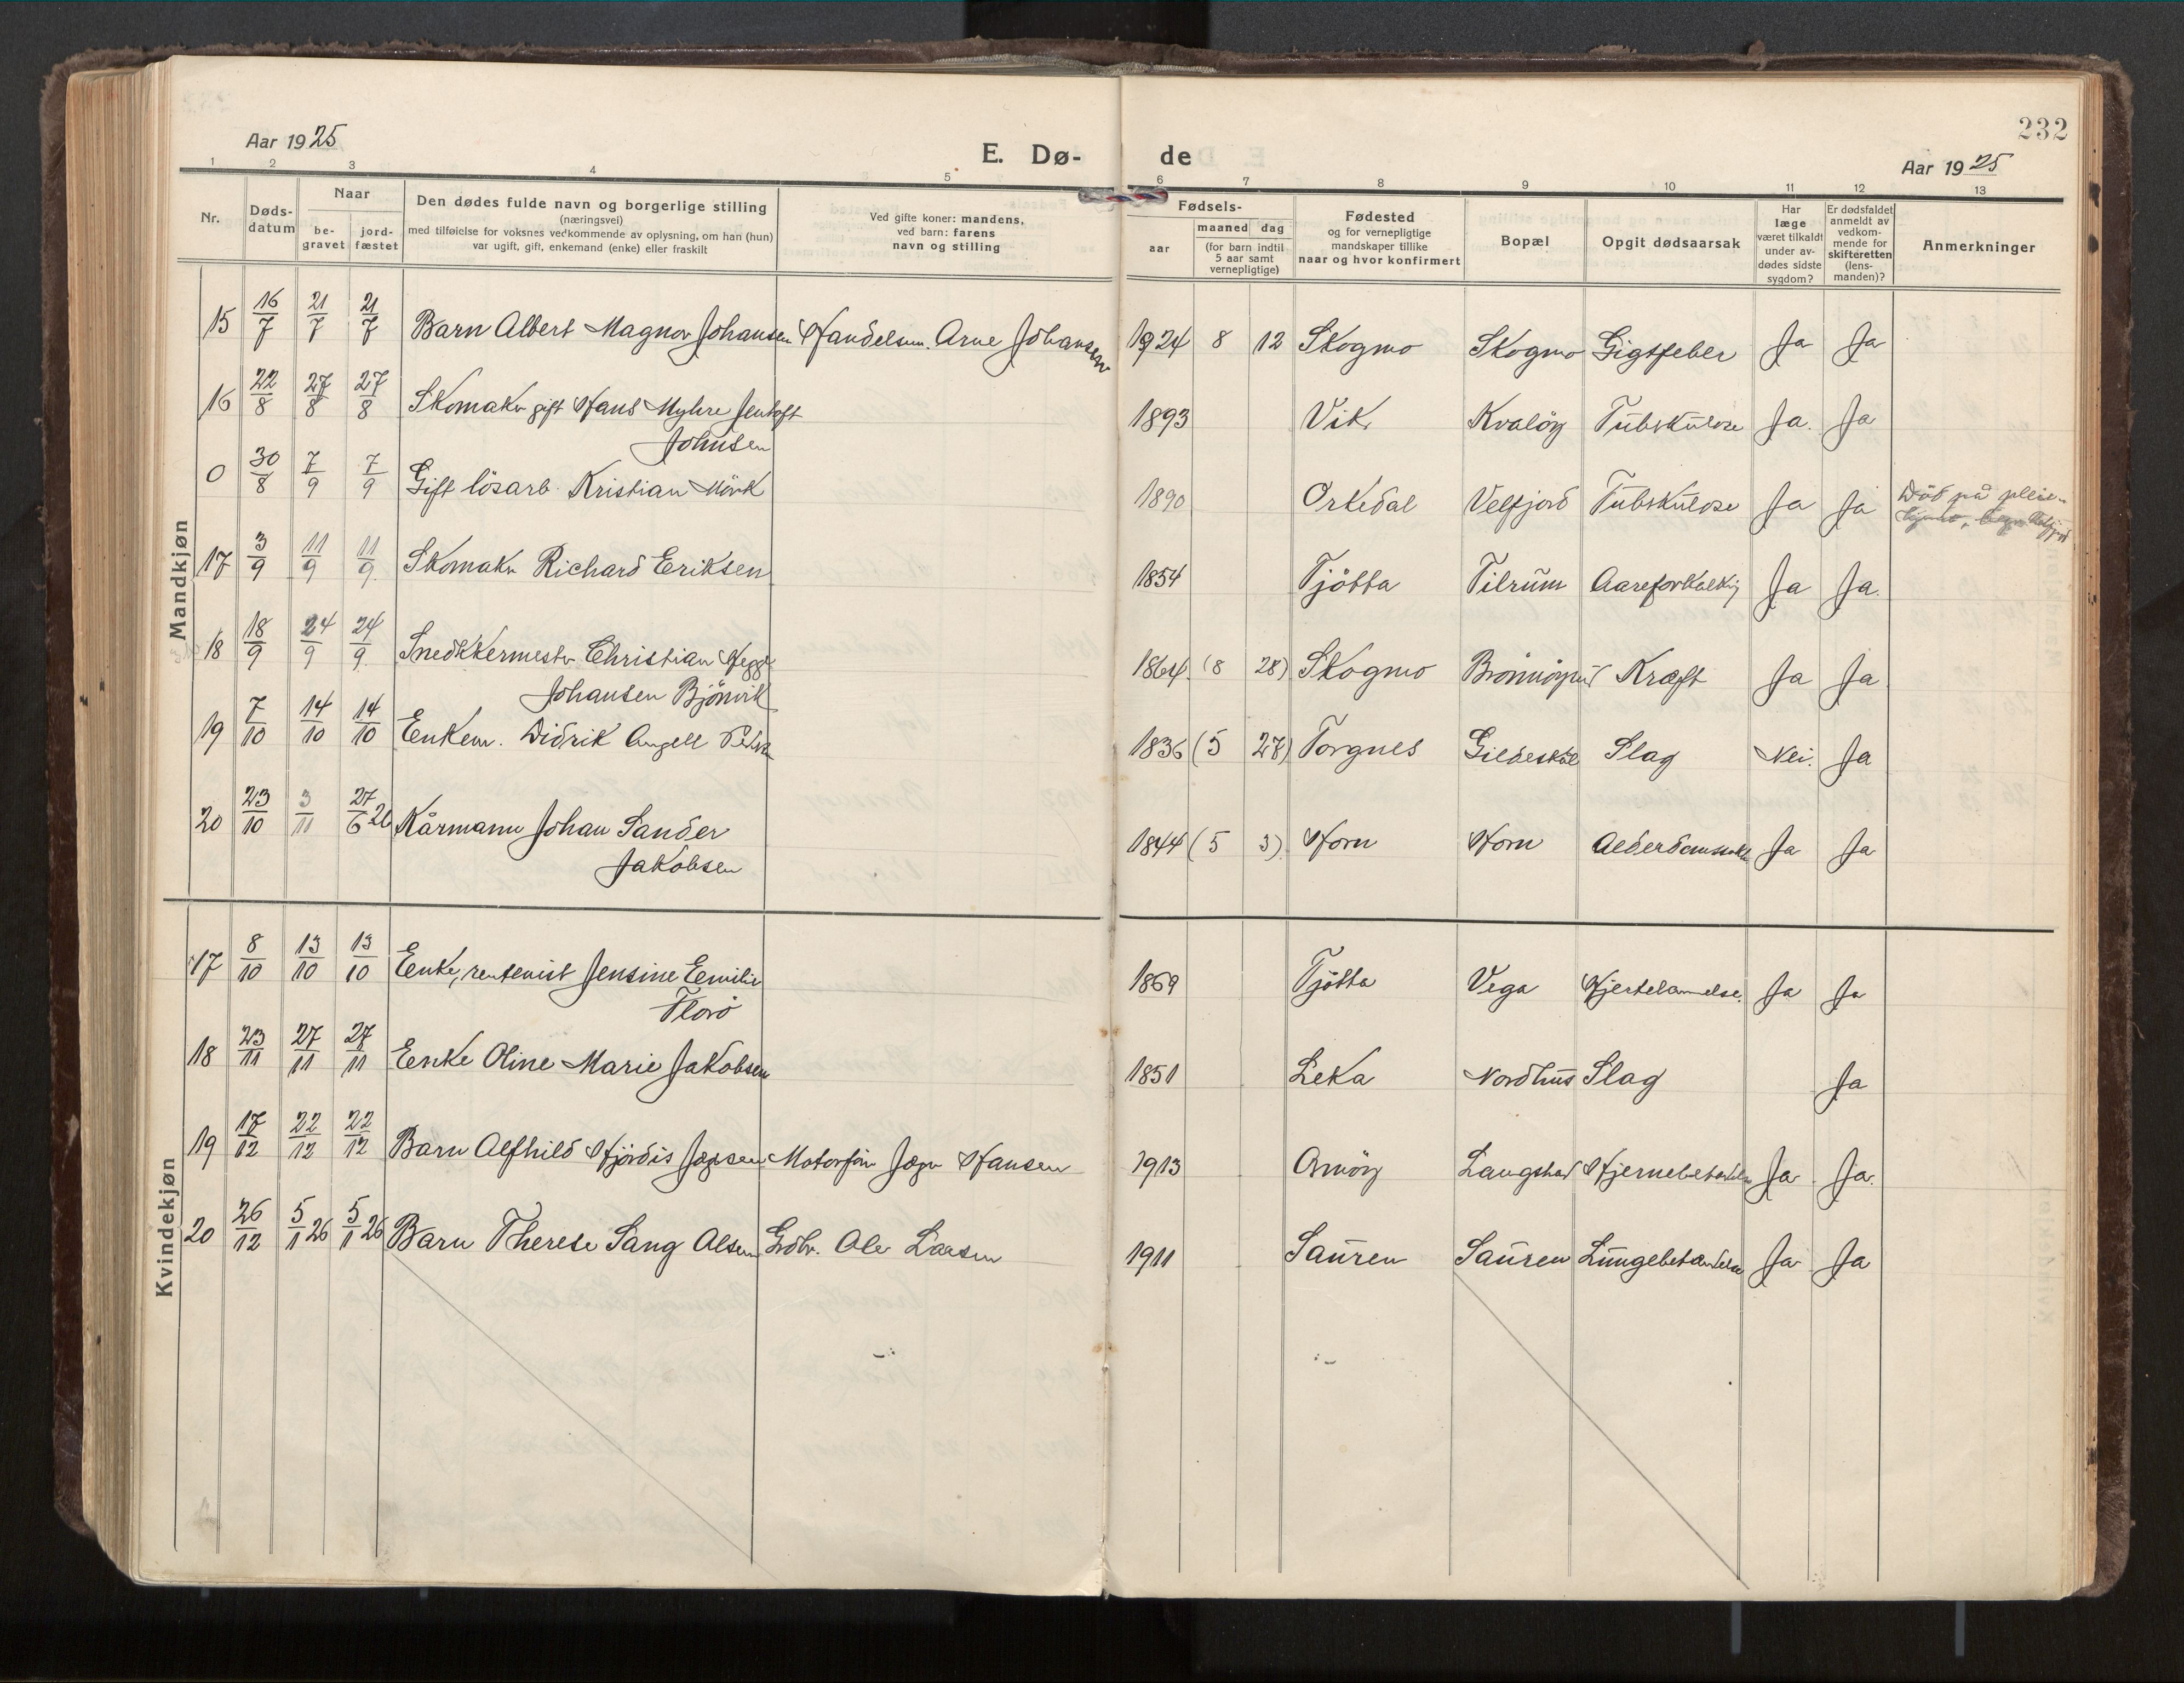 232
Aar 1925
E. Dø-
de
Aar 1925
1 2 3 4 5 6 7 8 9 10 11 12 13
Nr.
Døds-
datum
Naar
be-
gravet
jord-
fæstet
Den dødes fulde navn og borgerlige stilling
(næringsvei)
med tilføielse for voksnes vedkommende av oplysning, om han (hun)
var ugift, gift, enkemand (enke) eller fraskilt
Ved gifte koner: mandens,
ved barn: farens
navn og stilling
Fødsels-
aar
maaned dag
(for barn indtil
5 aar samt
vernepligtige)
Fødested
og for vernepligtige
mandskaper tillike
naar og hvor konfirmert
Bopæl
Opgit dødsaarsak
Har
læge
været tilkaldt
under av-
dødes sidste
sygdom?
Er dødsfaldet
anmeldt av
vedkom-
mende for
skifteretten
(lens-
manden)?
Anmerkninger
Mandkjøn
15 16/7 21/7 21/7 Barn Albert Magnor Johansen Handelsm. Arne Johansen 1924 8 12 Skogmo Skogmo Gigtfeber Ja Ja
16 22/8 27/8 27/8 Skomaker gift Hans Myhre Jentoft
Johnsen 1893 Vik Kvaløy Tuberkulose Ja. Ja
0 30/8 7/9 7/9 Gift løsarb. Kristian Mörk 1890 Orkedal Velfjord Tuberkulose Ja Ja Död på pleie-
17 3/9 11/9 11/9 Skomaker Richard Eriksen 1854 Tjötta Tilrum Aareforkalkn Ja Ja.
18 18/9 24/9 24/9 Snedkkermester Christian Hegge
Johansen Bjönvik 1864 (8 28) Skogmo Brönnöysund Kræft Ja Ja
19 7/10 14/10 14/10 Enkem. Didrik Angell Peters 1836 (5 27) Torgnes Gildeskål Slag Nei. Ja
20 23/10 3/11 27/6 26 Kårmann Johan Sander
Jakobsen 1844 (5 3) Horn Horn Alderdomssvakh Ja Ja
Kvindekjøn
17 8/10 13/10 13/10 Enke, rentenist Jensine Emilie
Florö 1869 Tjötta Vega Hjertelammelse. Ja Ja
18 23/11 27/11 27/11 Enke Oline Marie Jakobsen 1851 Leka Nordhus Slag Ja
19 17/12 22/12 22/12 Barn Alfhild Hjördis Jæger Motorfør Jæger Hansen 1913 Omöy Langstad Hjernebetændelse Ja Ja.
20 26/12 5/1 26 5/1 26 Barn Therese Sang Olsen Grdbr. Ole Larsen 1911 Sauren Sauren Lungebetændelse Ja Ja